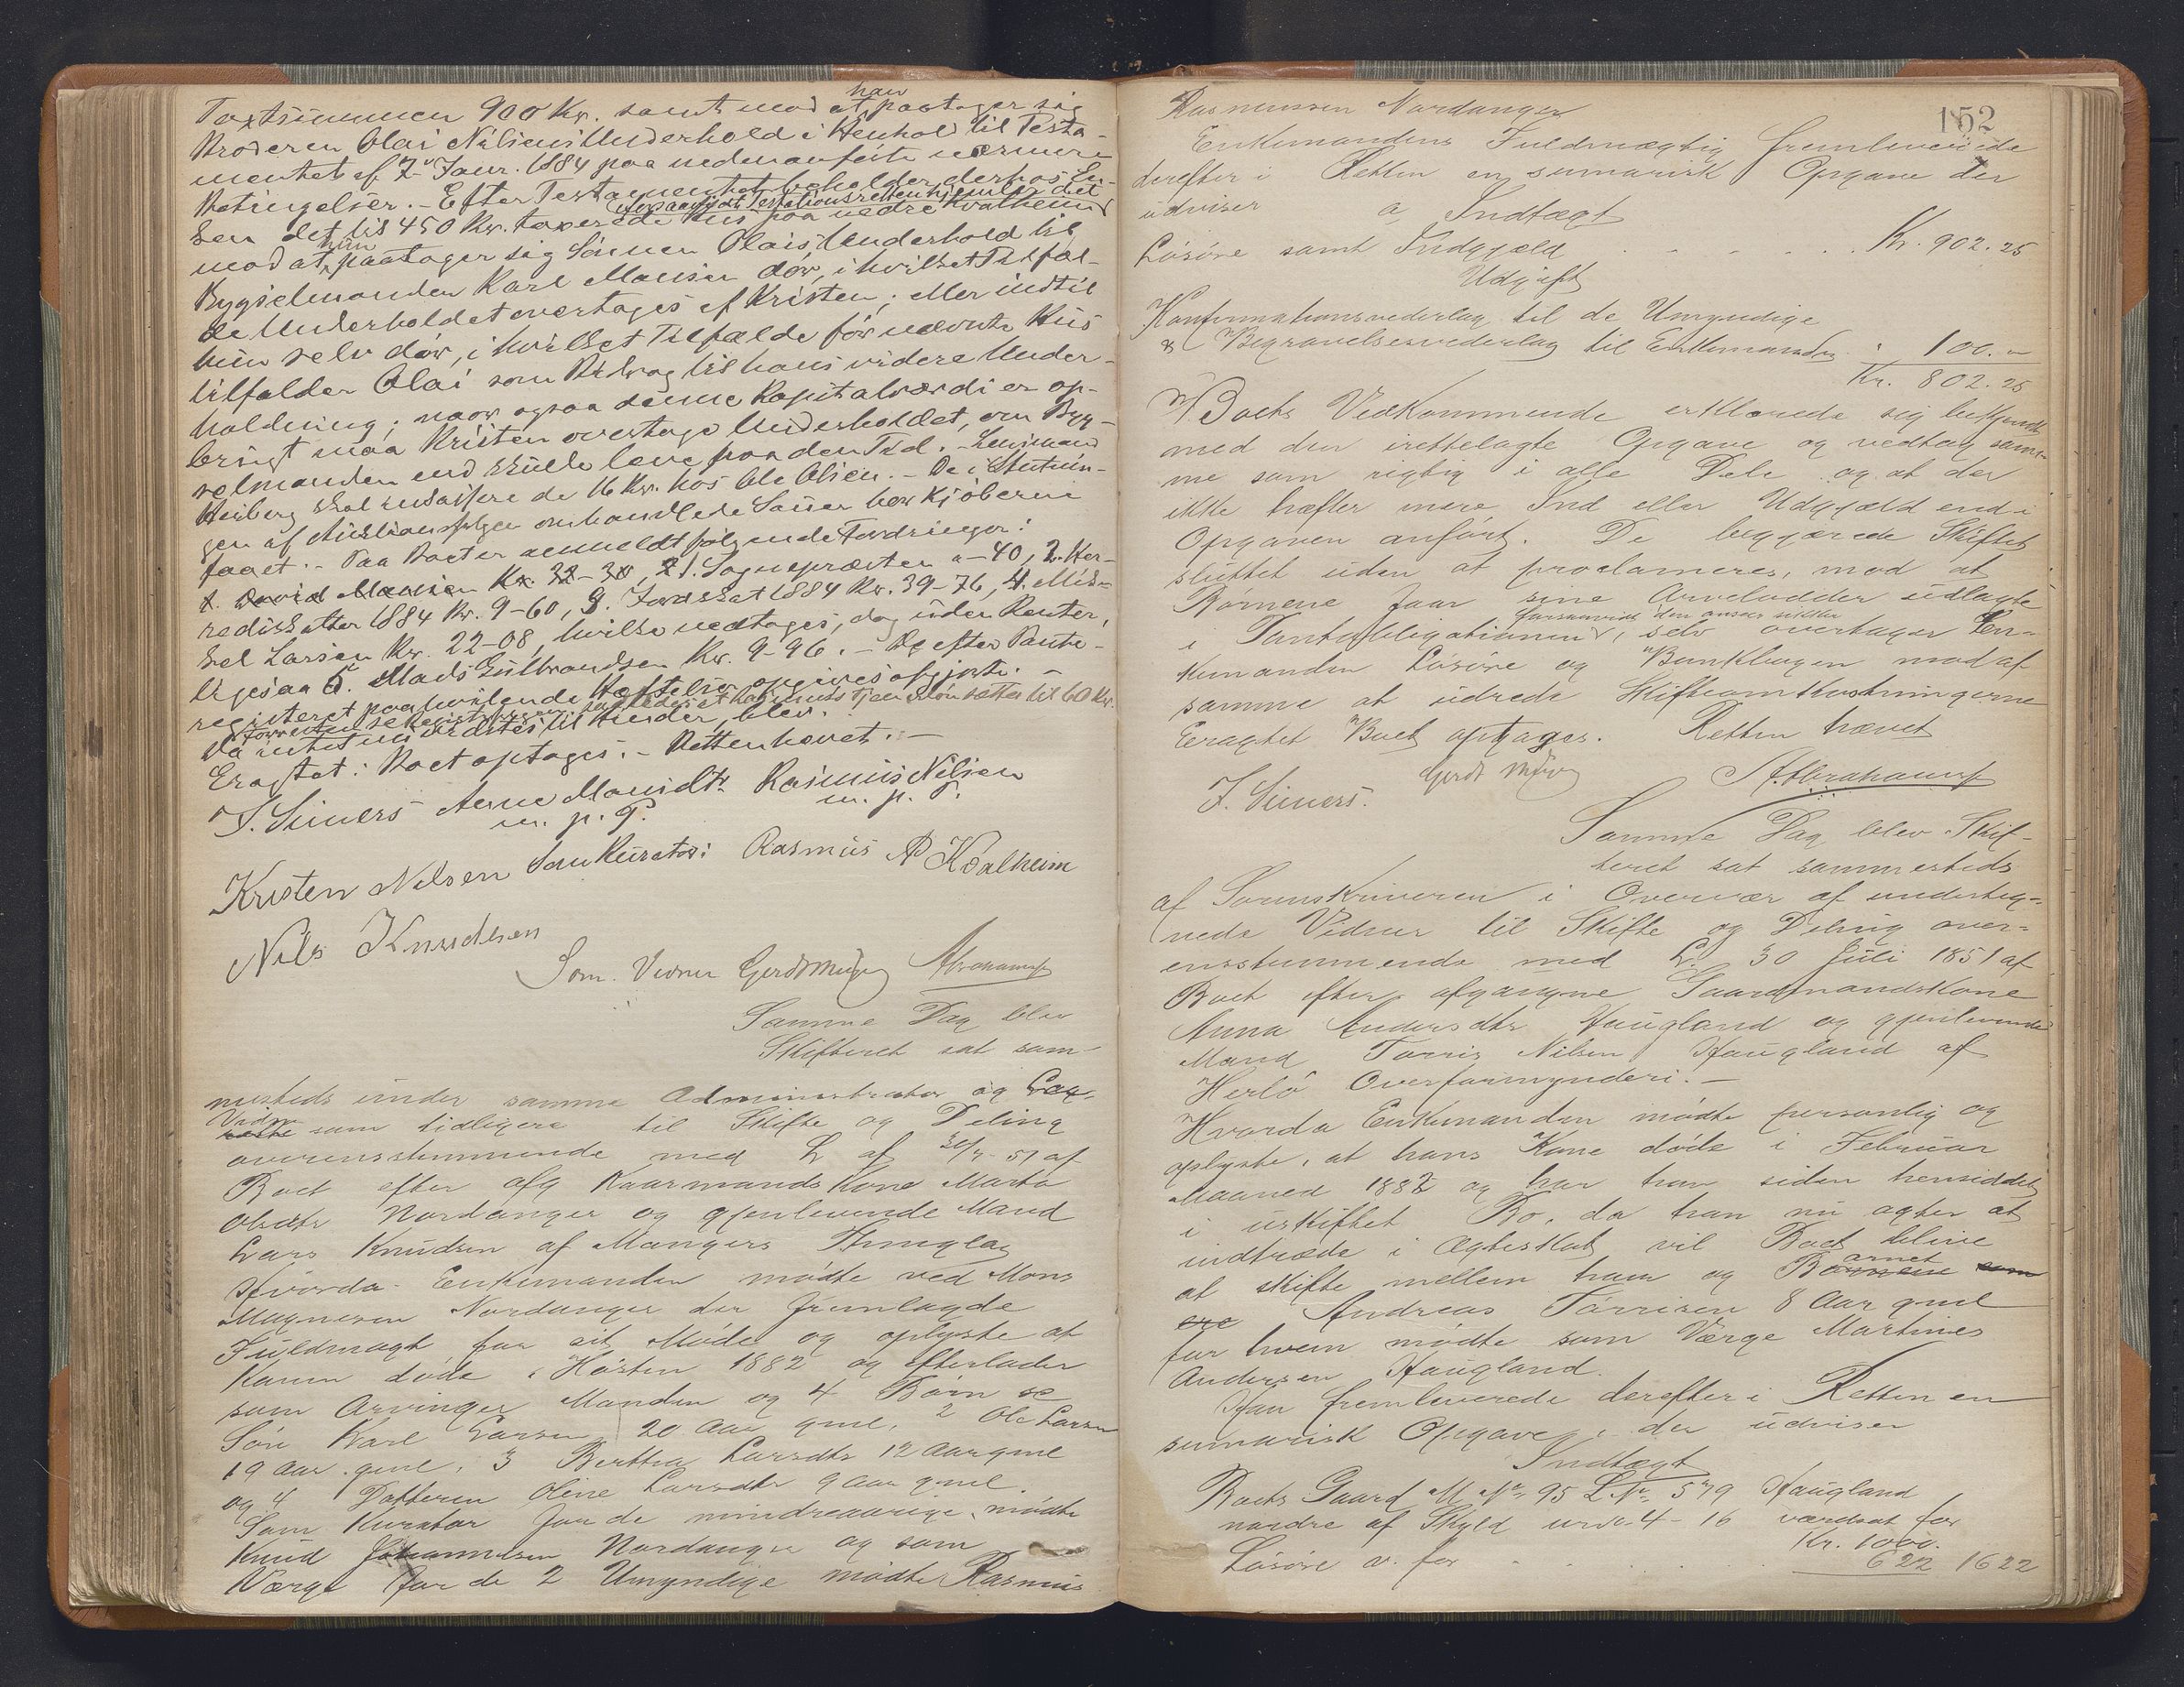 Taxtsummen 900 Kr. samt mod at han paatager sig
Broderen Olai Nilsens Underhold i Henhold til Testa-
mentet af 7 Janr. 1884 paa nedenanførte nærmere
Betingelser. - Efter Testamentet beholder derhos En-
ken det til 450 Kr. taxerede Hus paa nedre Kvalheim
mod at hun paatager sig Sønnen Olais Underhold til
Bygselmanden Karl Monsen dør, i hvilket Tilfæl-
de Underholdet overtages af Kristen; eller indtil
hun selv dør, i hvilket Tilfælde førnævnte Hus
tilfalder Olai som Bidrag til hans videre Under-
holdning; naar ogsaa denne Kapitalværdi er op-
brugt maa Kristen overtage Underholdet, om Byg-
selmanden end skulle leve paa den Tid. - Lensmand
Heiberg skal indkassere de 16 Kr. hos Ole Olsen. - De i Slutnin-
gen af Auktionsfolgen omhandlede Sauer har Kjøberne
faaet. - Paa Boet er anmeldt følgende Fordringer:
1. David Monsen Kr. 32-30, 1. Sognepræsten " - 40, 2. Her-
redsskatter 1884 Kr. 9-60, 3. Fordskat 1884 Kr. 39-76, 4. Mik-
kel Larsen Kr. 22-08, hvilke vedtages, dog uden Renter,
ligesaa 5. Mads Gulbrandsen Kr. 9-96. - De efter Pante-
registeret paahvilende Hæftelser opgives afgjorte. -
Da intet nu videre til Hinder, blev
Eragtet: Boet optages. - Retten hævet. -
J. Siners Anne Monsdtr Rasmus Nilsen
m. p. P. m. p. P.
Kristen Nilsen Som Kurator: Rasmus Kvalheim
Nils Knudsen
Som Vidner Gerdt Meyer Abrahamsen
Samme Dag blev
Skifteret sat sam-
mesteds under samme Administrator og
Vidner som tidligere til Skifte og Deling
overensstemmende med L af 30/7 51 af
Boet efter afg Kaarmands Kone Marta
Olsdtr Nordanger og gjenlevende Mand
Lars Knudsen af Mangers Thinglag
Hvorda Enkemanden mødte ved Mons
Magnesen Nordanger der fremlagde
Fuldmagt for sit Møde og oplyste at
Konen døde i Høsten 1882 og efterlader
som Arvinger Manden og 4 Børn se
Søn Karl Larsen 20 Aar gml. 2 Ole Larsen
19 Aar gml, 3 Berthea Larsdtr 12 Aar gml
og 4 Datteren Oline Larsdtr 9 Aar gml.
Som Kurator for de mindreaarige mødte
Knud Johannesen Nordanger og som
Værge for de 2 Umyndige mødte Rasmus
152
Rasmussen Nordanger
Enkemandens Fuldmægtig fremleverede
derefter i Retten en sumarisk Opgave der
udviser a, Indtægt
Løsøre samt Indgjæld . . . . Kr. 902. 25
Udgift
Konfirmationsvederlag til de Umyndige
& Begravelsesvederlag til Enkemanden " 100. "
Kr. 802. 25
Boets Vedkommende erklærede sig bekjendt
med den irettelagte Opgave og vedtog sam-
me som rigtig i alle Dele og at der
ikke hæfter mere Ind eller Udgjæld end i
Opgaven anført. De begjærede Skiftet
sluttet uden at proclameres, mod at
Børnene faar sine Arvelodder udlagte
i Pantobligationen forsaavidt den ansees sikker, selv overtager En-
kemanden Løsøre og mod af
samme at udrede Skifteomkostningerne
Eragtet Boet optages. Retten hævet
J. Siners. Gerdt Meyer Abrahamsen
Samme Dag blev Skif-
teret sat sammesteds
af Sorenskriveren i Overvær af underteg-
nede Vidner til Skifte og Deling over-
ensstemmende med L. 30 Juli 1851 af
Boet efter afgangne Gaardmandskone
Anna Andersdtr Haugland og gjenlevende
Mand Torris Nilsen Haugland af
Herlø Overformynderi. -
Hvorda Enkemanden mødte personlig og
oplyste, at hans Kone døde i Februar
Maaned 1882 og har han siden hensiddet
i uskiftet Bo, da han nu agter at
indtræde i Ægteskab vil Boet blive
at skifte mellem ham og Barnet
Andreas Torrisen 8 Aar gml
for hvem mødte som Værge Martines
Andersen Haugland.
Han fremleverede derefter i Retten en
sumarisk Opgave, der udviser
Indtægt
Boets Gaard M No 95 L No 579 Haugland
nordre af Skyld 4 - 16 værdsat for
Kr. 1000.
Løsøre v. for . . . . 622 1622